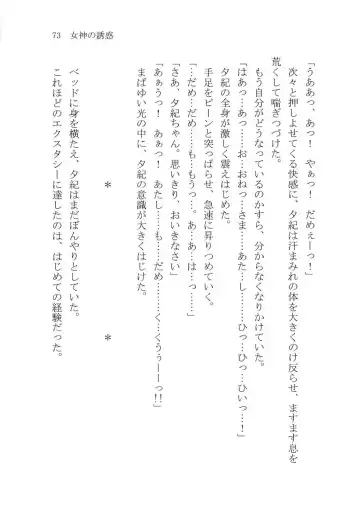 73　女神の誘惑
「うああっ、あっ！　やぁっ！　だめぇーっ！」
次々と押しよせてくる快感に、夕紀は汗まみれの体を大きくのけ反らせ、ますます息を
荒くして喘ぎつづけた。
もう自分がどうなっているのかすら、分からなくなりかけていた。
「はあっ…あっ…お…おねっ…さま…あた…し……ひっ…ひっ…ひいっ！」
夕紀の全身が激しく震えはじめた。
手足をピーンと突っぱらせ、急速に昇りつめていく。
「だめ……も…もうっ…。あ…あ…はっ……」
「さあ、夕紀ちゃん。思いきり、おいきなさい」
「あぁうっ！　あぁっ！　あたし……も…だめ……く…くうぅーーっ!!」
まばゆい光の中に、夕紀の意識が大きくはじけた。
＊　　＊
ベッドに身を横たえ、夕紀はまだぼんやりとしていた。
これほどのエクスタシーに達したのは、はじめての経験だった。